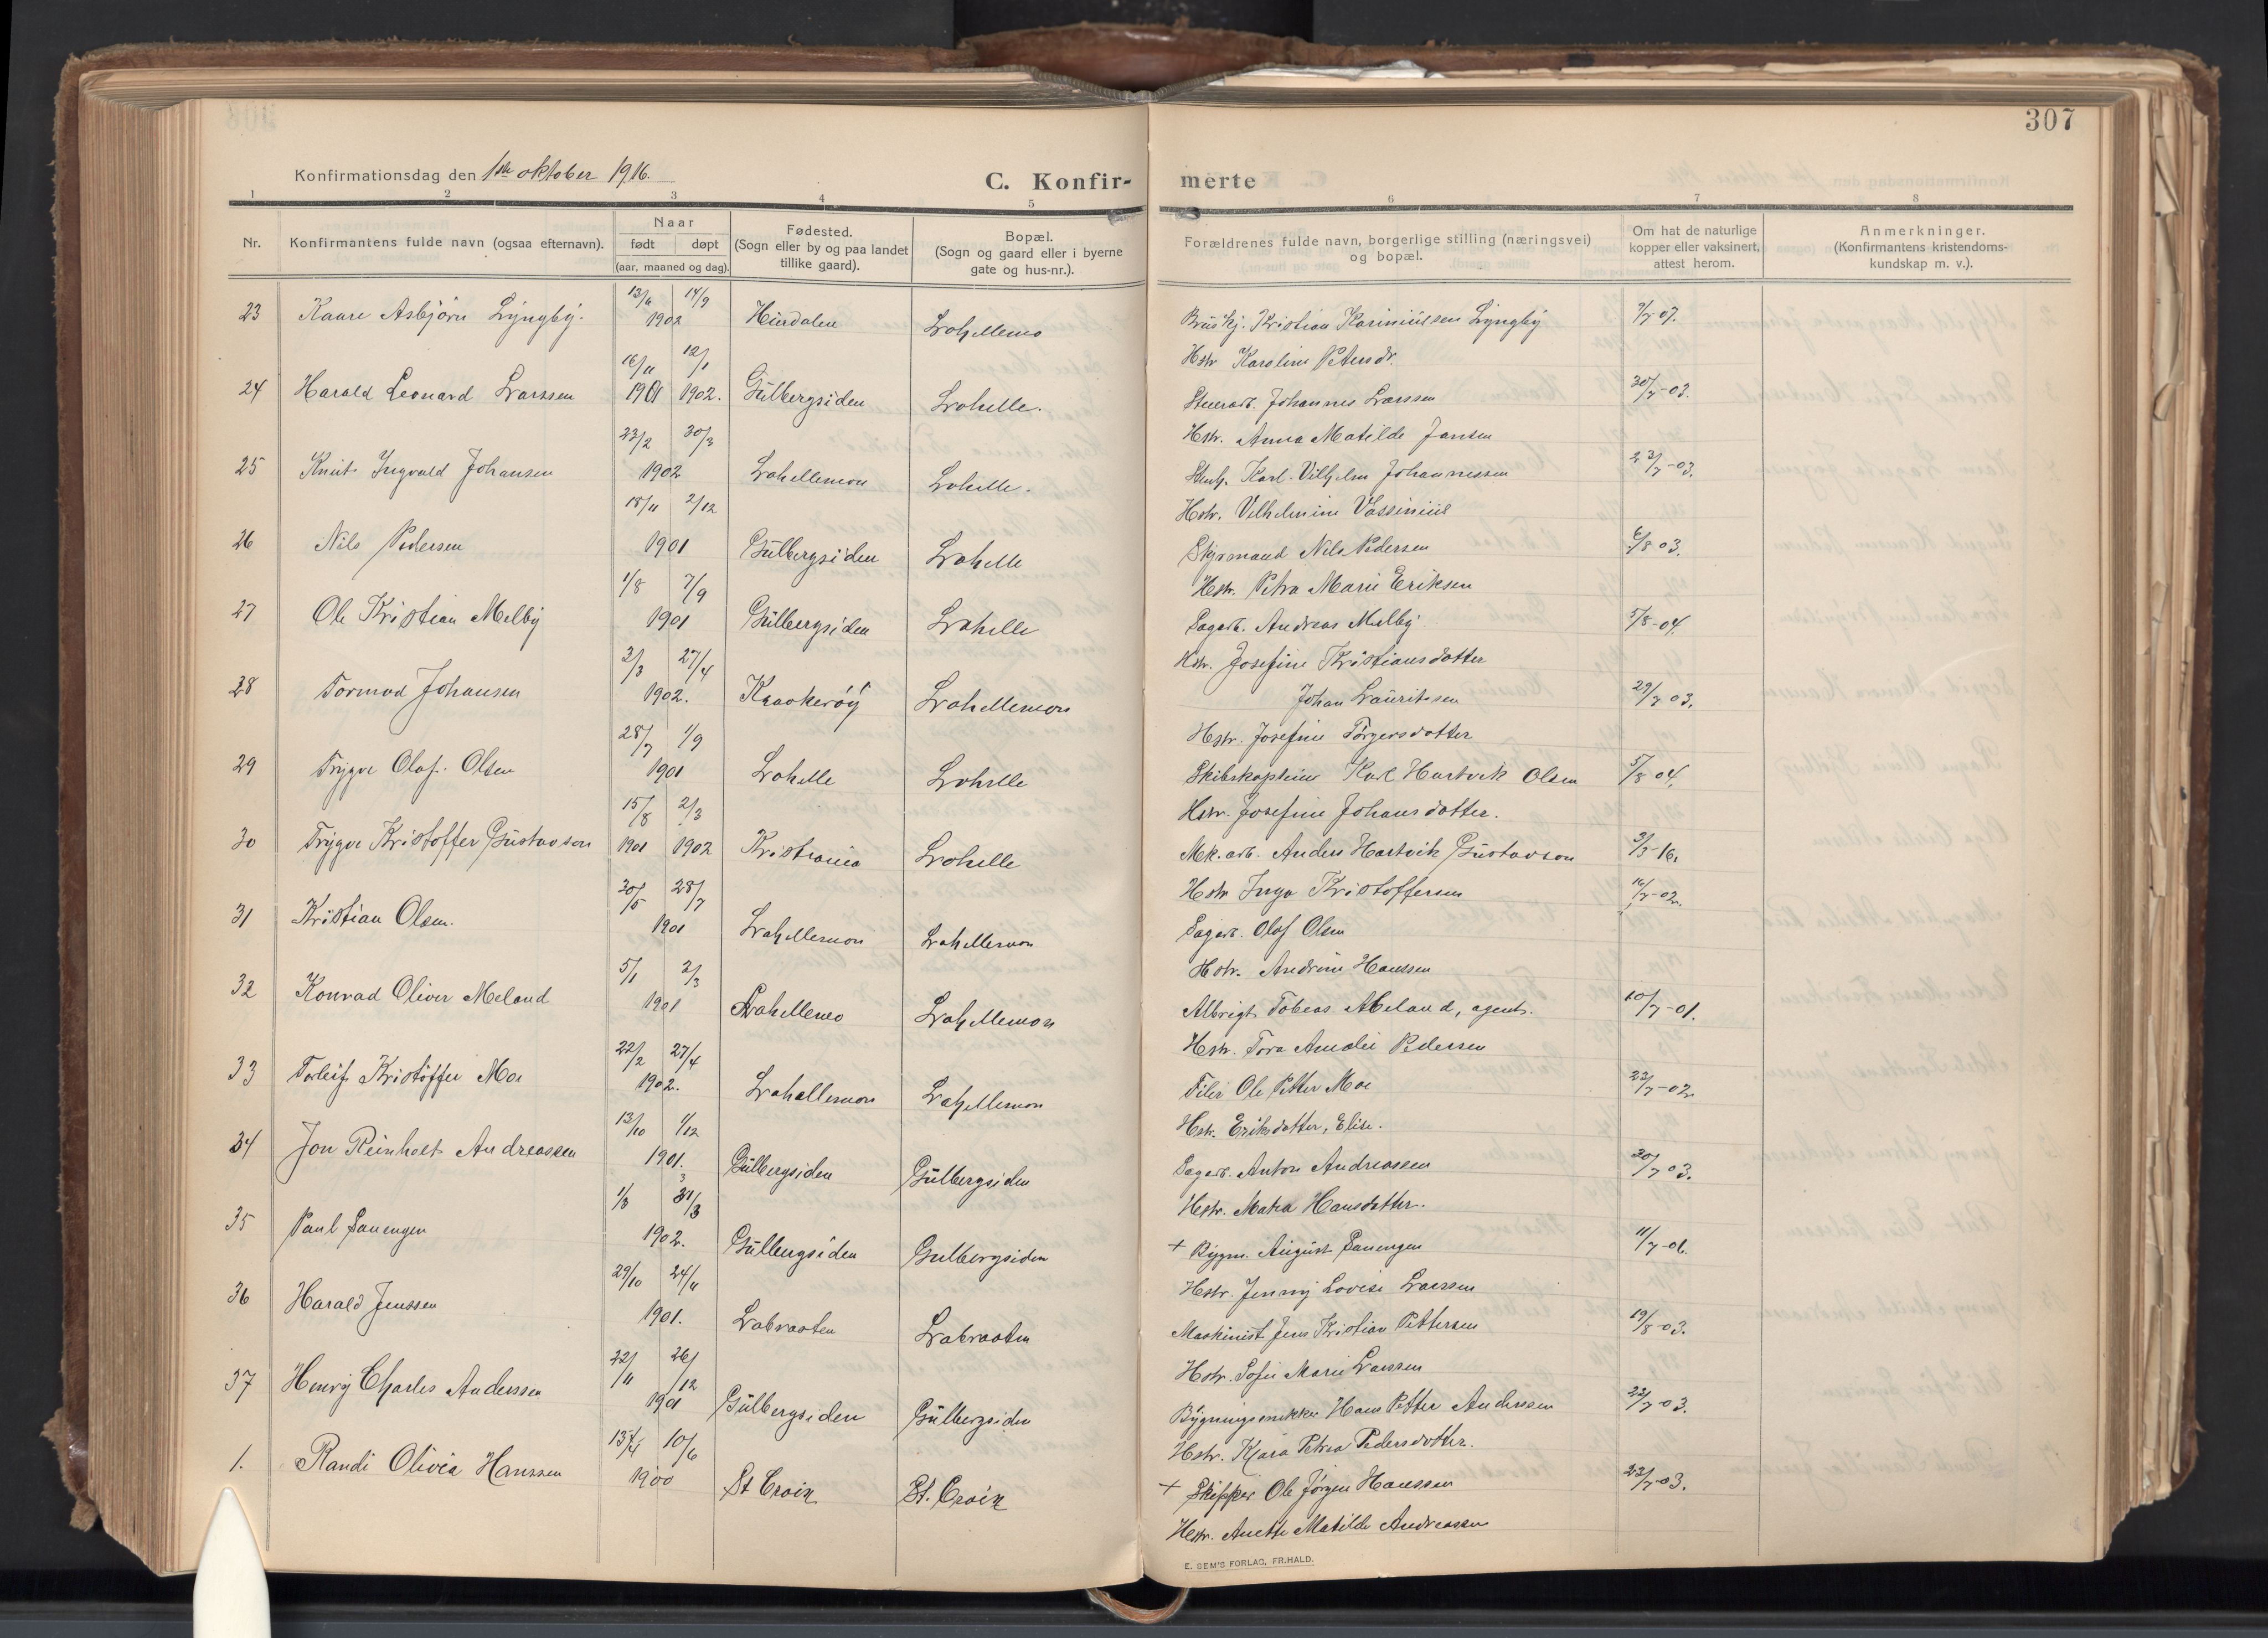 307
Konfirmationsdag den 1ste oktober 1916.
C. Konfir- merte
1 2 3 4 5 6 7 8
Nr. Konfirmantens fulde navn (ogsaa efternavn). Naar født døpt (aar, maaned og dag). Fødested. (Sogn eller by og paa landet tillike gaard). Bopæl. (Sogn og gaard eller i byerne gate og hus-nr.). Forældrenes fulde navn, borgerlige stilling (næringsvei) og bopæl. Om hat de naturlige kopper eller vaksinert, attest herom. Anmerkninger. (Konfirmantens kristendoms- kundskap m. v.).
23 Kaare Asbjörn Lÿngbÿ. 14/9 1902 Lahellemo Kristian Lÿngbÿ 9/7 07.
Hstr Karoline Petersdr.
24 Harald Leonard Larssen 16/11 1901 12/1 1902. Gülbergsiden Lahelle. Johannes Larssen 30/7-03.
Hstr. Anna Matilde Jansen
25 Knut Ingvald Johansen 23/2 30/3 1902 Lahellemon Lahelle. Karl Vilhelm Johannessen 23/7-03.
Hstr. Vilhelmine
26 Nils Pedersen 18/11 2/12 1901 Gülbergsiden Lahelle Styrmand Nils Pedersen 6/8 03.
Hstr. Petra Marie Eriksen
27 Ole Kristian Melbÿ 1/8 7/9 1901 Gülbergsiden Lahelle Sagarb. Andreas Melbÿ 5/8-04.
Hstr. Josefine Kristiansdatter
28 Tormod Johansen 2/3 27/4 1902. Kraakeröÿ Lahellemon Johan Lauritssen 29/7 03.
Hstr. Josefine Törgersdatter
29 Trygve Olaf Olsen 28/7 1/9 1901 Lahelle Lahelle Skibskaptein Karl Hartvik Olsen 5/8 04.
Hstr. Josefine Johansdatter.
30 Trygve Kristoffer Gustavson 15/8 1901 2/3 1902 Kristiania Lahelle Mek. arb. Anders Hartvik Gustavson 3/3-16.
Hstr Inga Kristoffersen 16/7-02.
31 Kristian Olsen. 30/5 28/7 1901 Lahellemon Lahellemon Sagarb. Olaf Olsen
Hstr. Andrine Hanssen
32 Konrad Oliver Meland 5/1 2/3 1901 Lahellemo Lahellemon Albrigt Tobias Meland, agent. 10/7-01.
Hstr. Tora Amalie Pedersen
33 Torleif Kristoffer Moe 22/2 27/4 1902. Lahellemon Lahellemon Filer Ole Petter Moe 22/7-02
Hstr. Eriksdatter, Elise.
34 Jon Reinholt Andreassen 13/10 1/12 1901. Gülbergsiden Gülbergsiden Sagarb. Anton Andreassen 20/7 03.
Hstr. Matea Hansdatter.
35 Paul Lauengen 1/3 31/3 1902. Gülbergsiden Gulbergsiden + Bygm. August Lauengen 11/7-06.
Hstr. Jenny Lovise Larssen
36 Harald Jenssen 29/10 24/11 1901. Labraaten Labraaten Maskinist Jens Kristian Pettersen 19/8-03.
Hstr. Sofie Marie Larssen
37 Henrÿ Charles Anderssen 22/11 26/12 1901 Gülbergsiden Gülbergsiden Bÿgningssnikker Hans Petter Anderssen 22/7 03.
Hstr. Klara Petrea Pedersdatter.
1. Randi Olivia Hanssen 13/4 10/6 1900 St Croix St. Croix + Skipper Ole Jörgen Hanssen 23/7-03.
Hstr. Anette Matilde Andreassen
E. SEM'S FORLAG, FR.HALD.